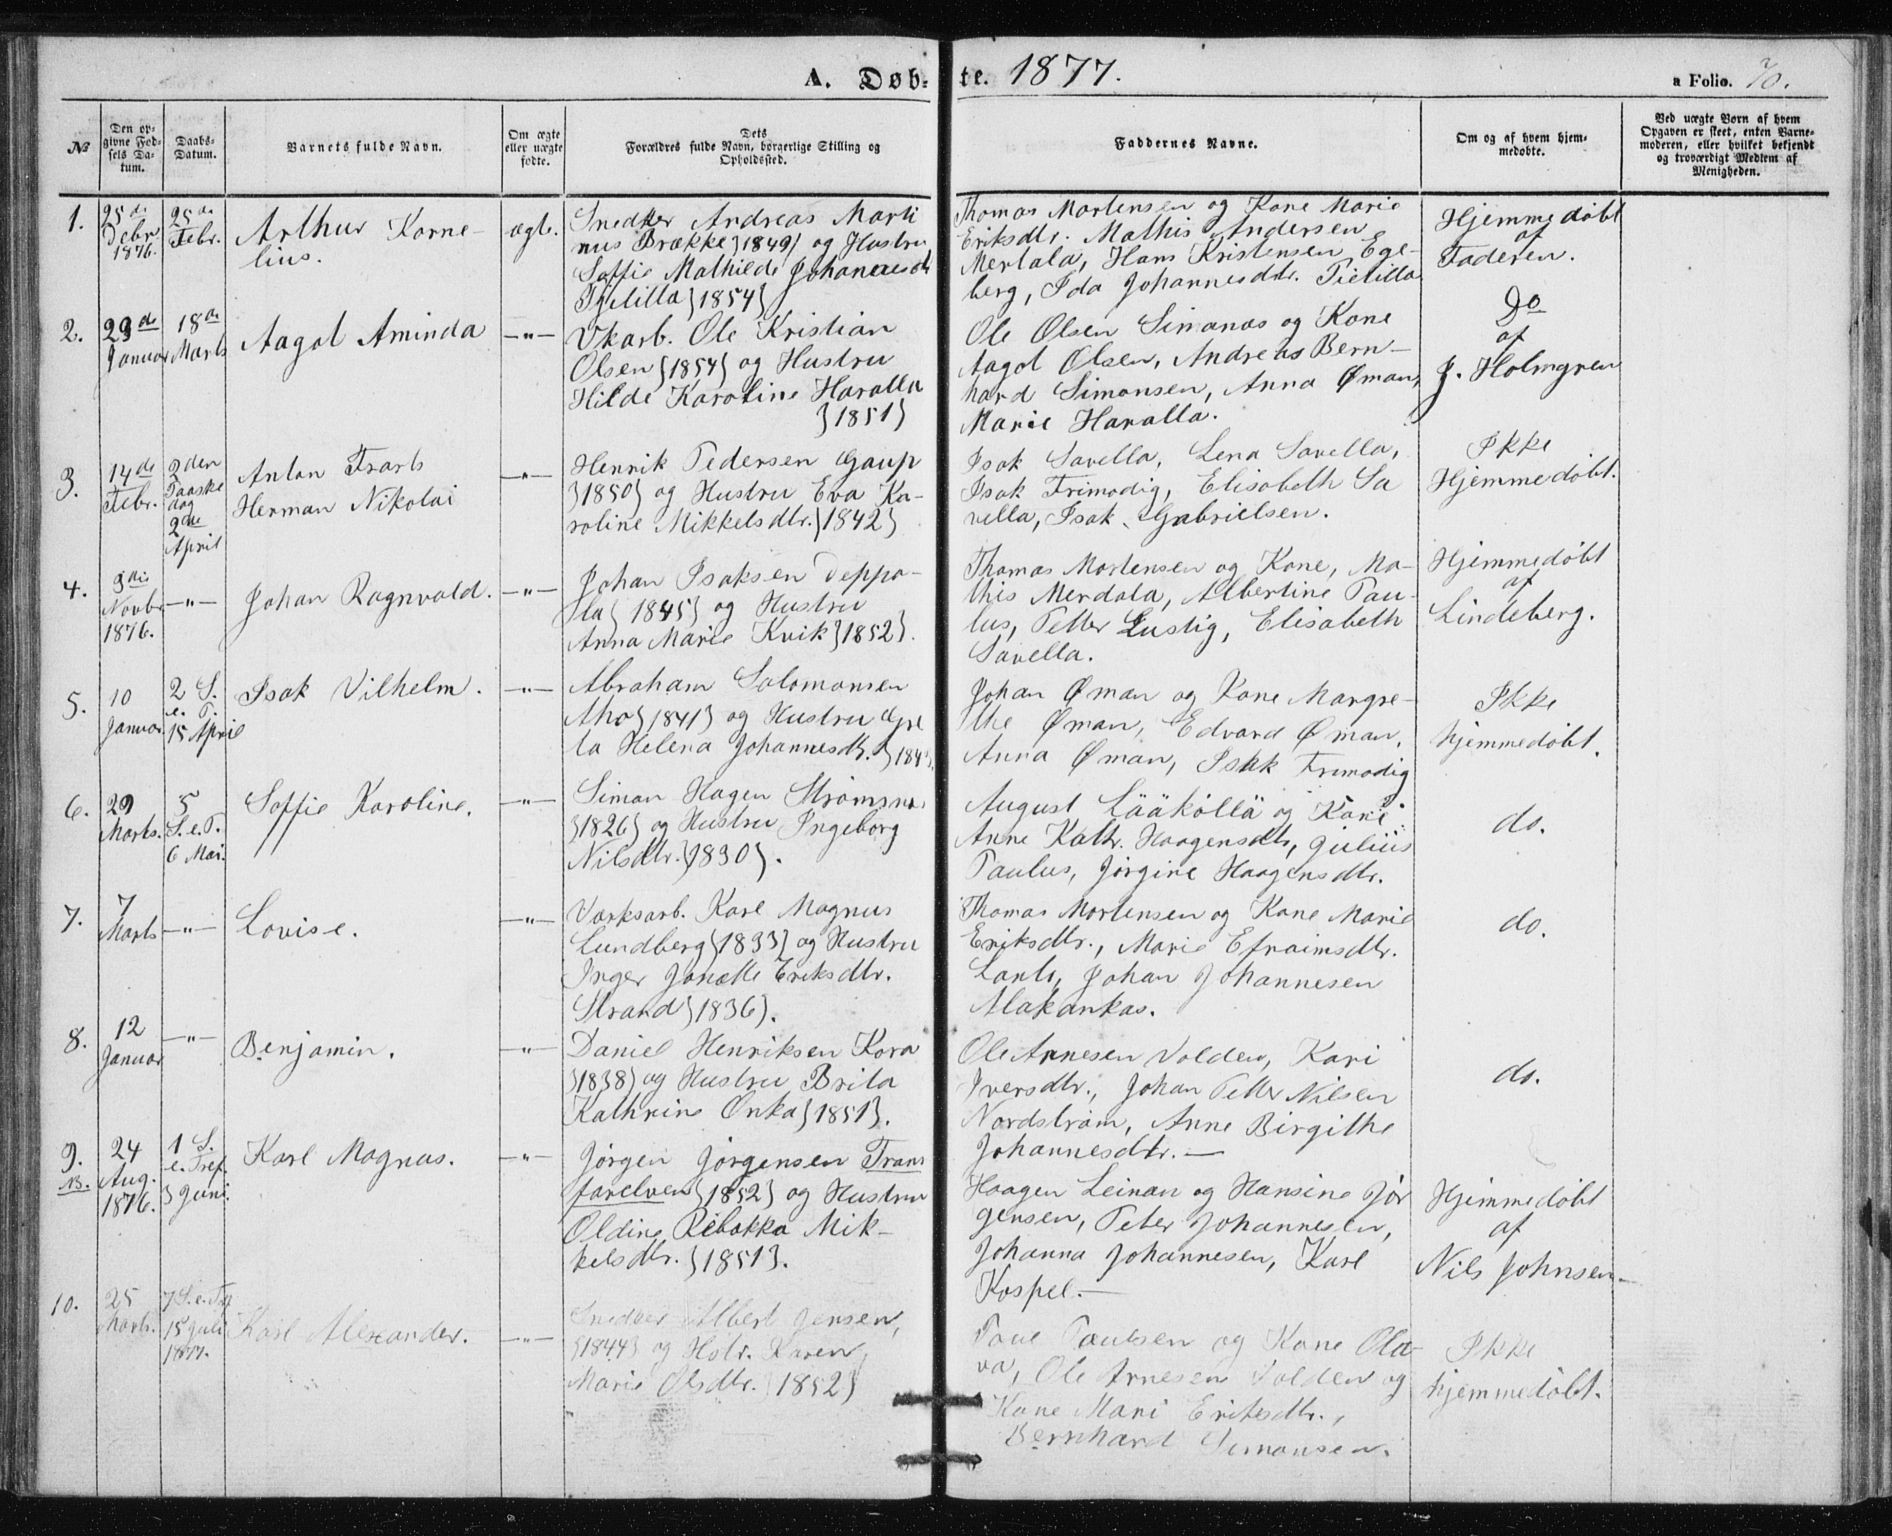 A. Døb- te. 1877. a Folio. 70.
№
Den op-
givne Fød-
sels Da-
tum.
Daabs-
Datum.
Barnets fulde Navn.
Om ægte
eller uægte
fødte.
Dets
Forældres fulde Navn, borgerlige Stilling og
Opholdssted.
Faddernes Navne.
Om og af hvem hjem-
medøbte.
Ved uægte Børn af hvem
Opgaven er skeet, enten Barne-
moderen, eller hvilket bekjendt
og troværdigt Medlem af
Menigheden.
1.
25de
Debr
1876.
25de
Febr.
Arthur Korne-
lius.
ægte.
Snedker Andreas Marti
nus Brække }1849} og Hustru
Soffie Mathilde Johannesdtr
Tjelilla }1854}
Thomas Mortensen og Kone Marie
Eriksdtr. Mathis Andersen
Mertala, Hans Kristensen Ege-
berg, Ida Johannesdtr. Tielilla
Hjemmedøbt
af
Faderen.
2.
29de
Januar
18de
Marts
Aagot Aminda
—"—
Vkarb. Ole Kristian
Olsen }1854} og Hustru
Hilde Karoline Haralla
}1851}
Ole Olsen Simanas og Kone
Aagot Olsen, Andreas Bern-
hard Simonsen, Anna Øman,
Marie Haralla.
Do
af
J. Holmgren
3.
14de
Febr.
2den
Paaske
dag
2den
April
Anton Frarts
Herman Nikolai
—"—
Henrik Pedersen Gaup
}1850} og Hustru Eva Ka-
roline Mikkelsdtr. }1842}
Isak Savella, Lena Savella,
Isak Frimodig, Elisabeth Sa
vella, Isak Gabrielsen.
Ikke
Hjemmedøbt.
4.
3die
Novbr
1876.
—"—
Johan Ragnvald.
—"—
Johan Isaksen Seppa-
la} 1845} og Hustru
Anna Marie Kvik }1852}.
Thomas Mortensen og Kone, Ma-
this Merdala, Albertine Pau-
lus, Petter Lustig, Elisabeth
Savella.
Hjemmedøbt
af
Lindeberg.
5.
10
Januar
2 S.
e. P.
15 April
Isak Vilhelm.
—"—
Abraham Salomonsen
Aho} 1841} og Hustru Gre
ta Helena Johannesdtr.
Johan Øman og Kone Margre-
the Øman, Edvard Øman,
Anna Øman, Isak Frimodig
Ikke
hjemmedøbt.
6.
29
Marts.
5
S. e. P.
6 Mai.
Soffie Karoline.
—"—
Simon Hagen Strømsnæs
}1826} og Hustru Ingeborg
Nilsdtr. }1830}.
August Lääköllä og Kone
Anne Kathr. Haagensdtr, Julius
Paulus, Jørgine Haagensdtr.
do.
7.
7
Marts
—"—
Lovise.
—"—
Værksarb. Karl Magnus
Lundberg }1833} og Hustru
Inger Janette Eriksdtr.
Strand }1836}.
Thomas Mortensen og Kone Marie
Eriksdtr., Marie Efraimsdtr.
Lanto, Johan Johannesen
Alakankas.
do.
8.
12
Januar
—"—
Benjamin.
—"—
Daniel Henriksen Kora
}1838} og Hustru Brita
Kathrine Onka }1851}.
Ole Arnesen Volden, Kari
Iversdtr., Johan Petter Nilsen
Nordstrøm, Anne Birgithe
Johannesdtr.—
do.
9.
NB.
24
Aug.
1876.
1 S.
e. Tref.
3 Juni
Karl Magnus.
—"—
Jørgen Jørgensen Trans
farelven }1852} og Hustru
Oldine Rebekka Mik-
kelsdtr. }1851}.
Haagen Leinan og Hansine Jør
gensen, Peter Johannesen,
Johanna Johannesen, Karl
Kospel.—
Hjemmedøbt
af
Nils Johnsen—
10.
25
Marts.
7 S. e. Tr
15 Juli
1877.
Karl Alexander.
—"—
Snedker Albert Jensen,
}1844} og Hstr. Karen
Marie Olsdtr. }1852}
Paul Paulsen og Kone Ola-
va, Ole Arnesen Volden og
Kone Mari Eriksdtr.,
Bernhard Simonsen.
Ikke
hjemmedøbt.